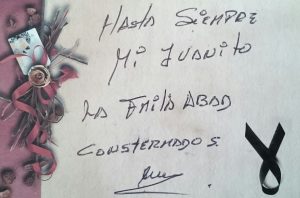 HASTA SIEMPRE
MI JUANITO
LA FMILI ABAD
CONSTERNADOS.